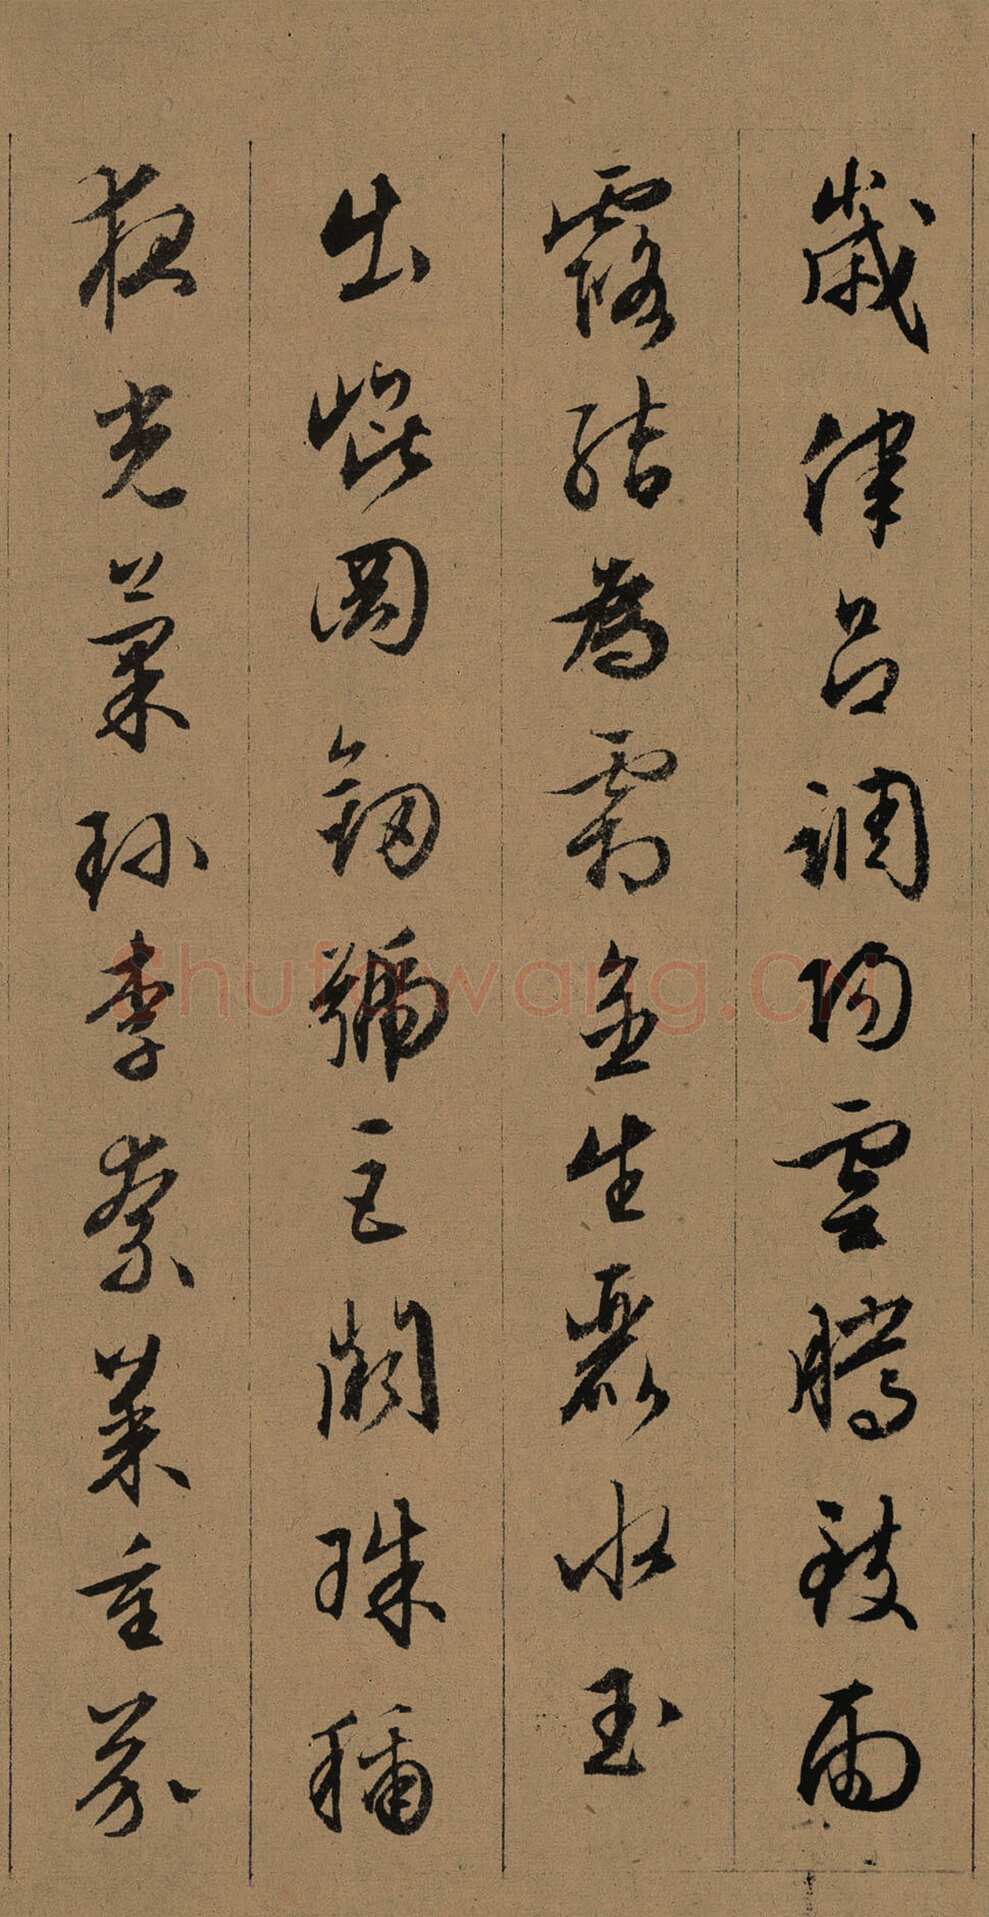 歲律呂調陽雲騰致雨
露結為霜金生麗水玉
出崐岡劒號巨闕珠稱
夜光菓珎李柰菜重芥
shufawang.cn